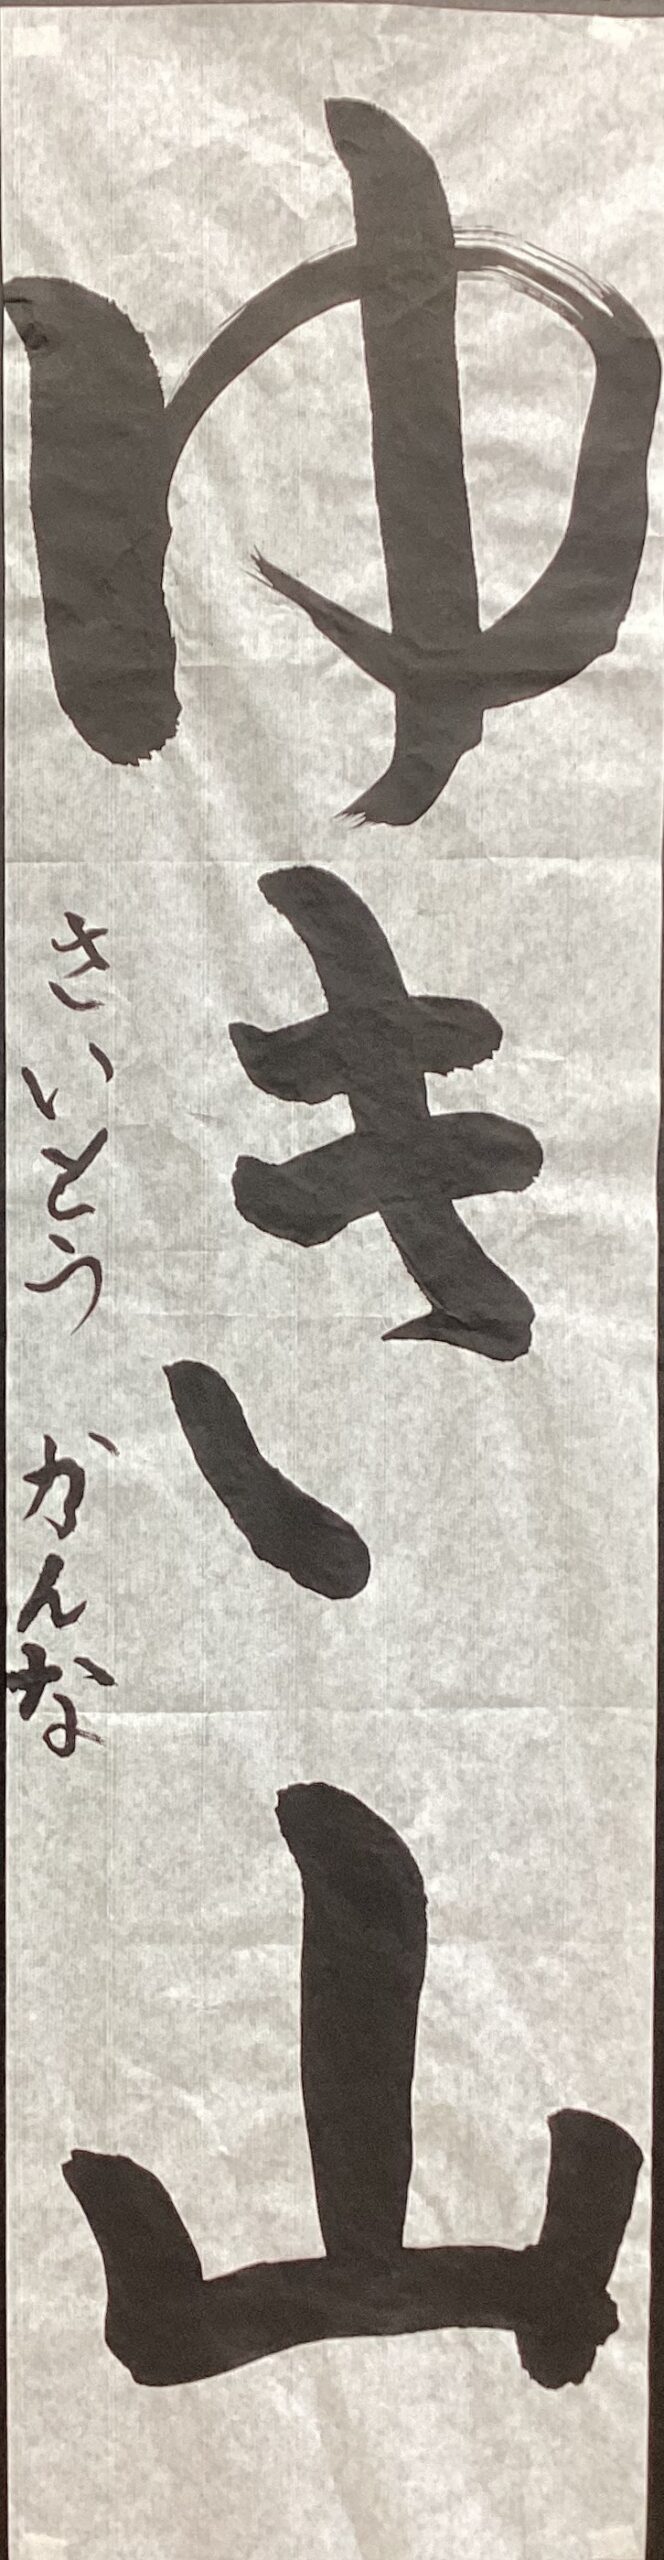 ゆき山
さいとう かんな